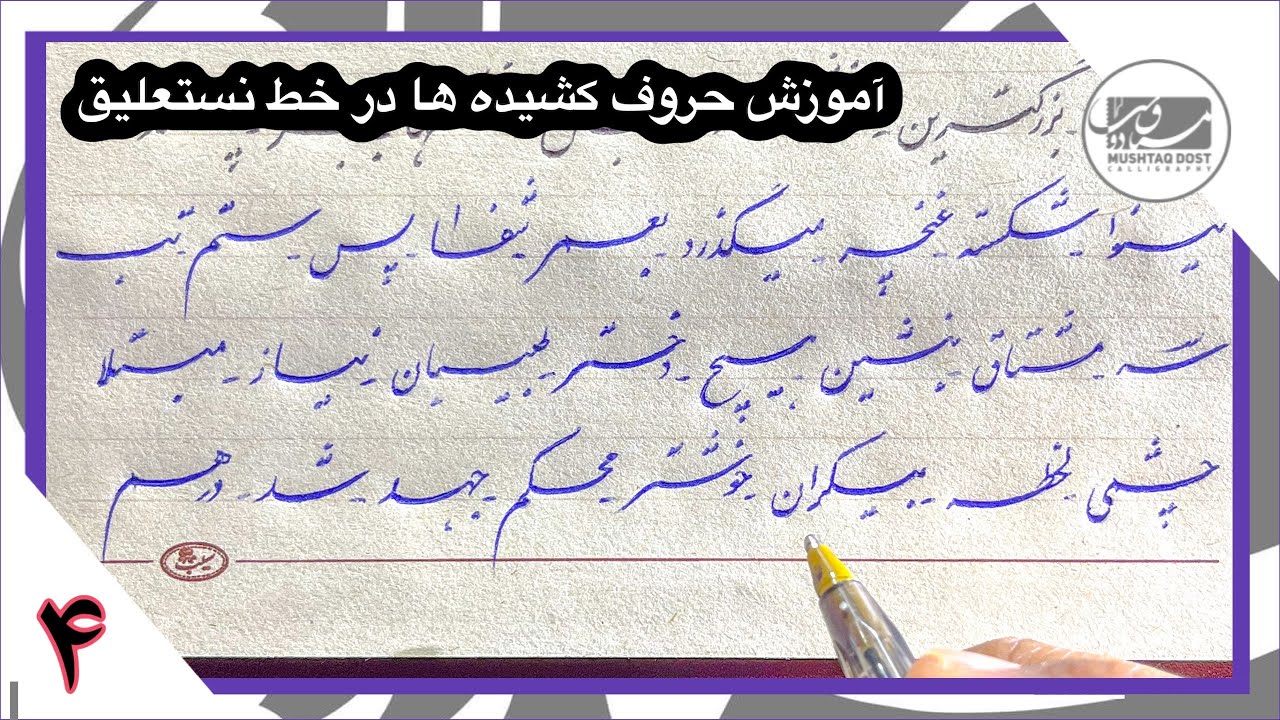 آموزش حروف کشیده ها در خط نستعلیق
بزرگترین
MUSHTAQ DOST
CALLIGRAPHY
بینوا - شکسته - غنچه - میگذرد - بعمر - شفا - پس - ستم - تب
سه - مشتاق - بنشین - بسیج - دختر - طبیبان - نیاز - مبتلا
چشمی - لحظه - بیکران - خوشتر - محکم - جهد - شد - درهم
۴